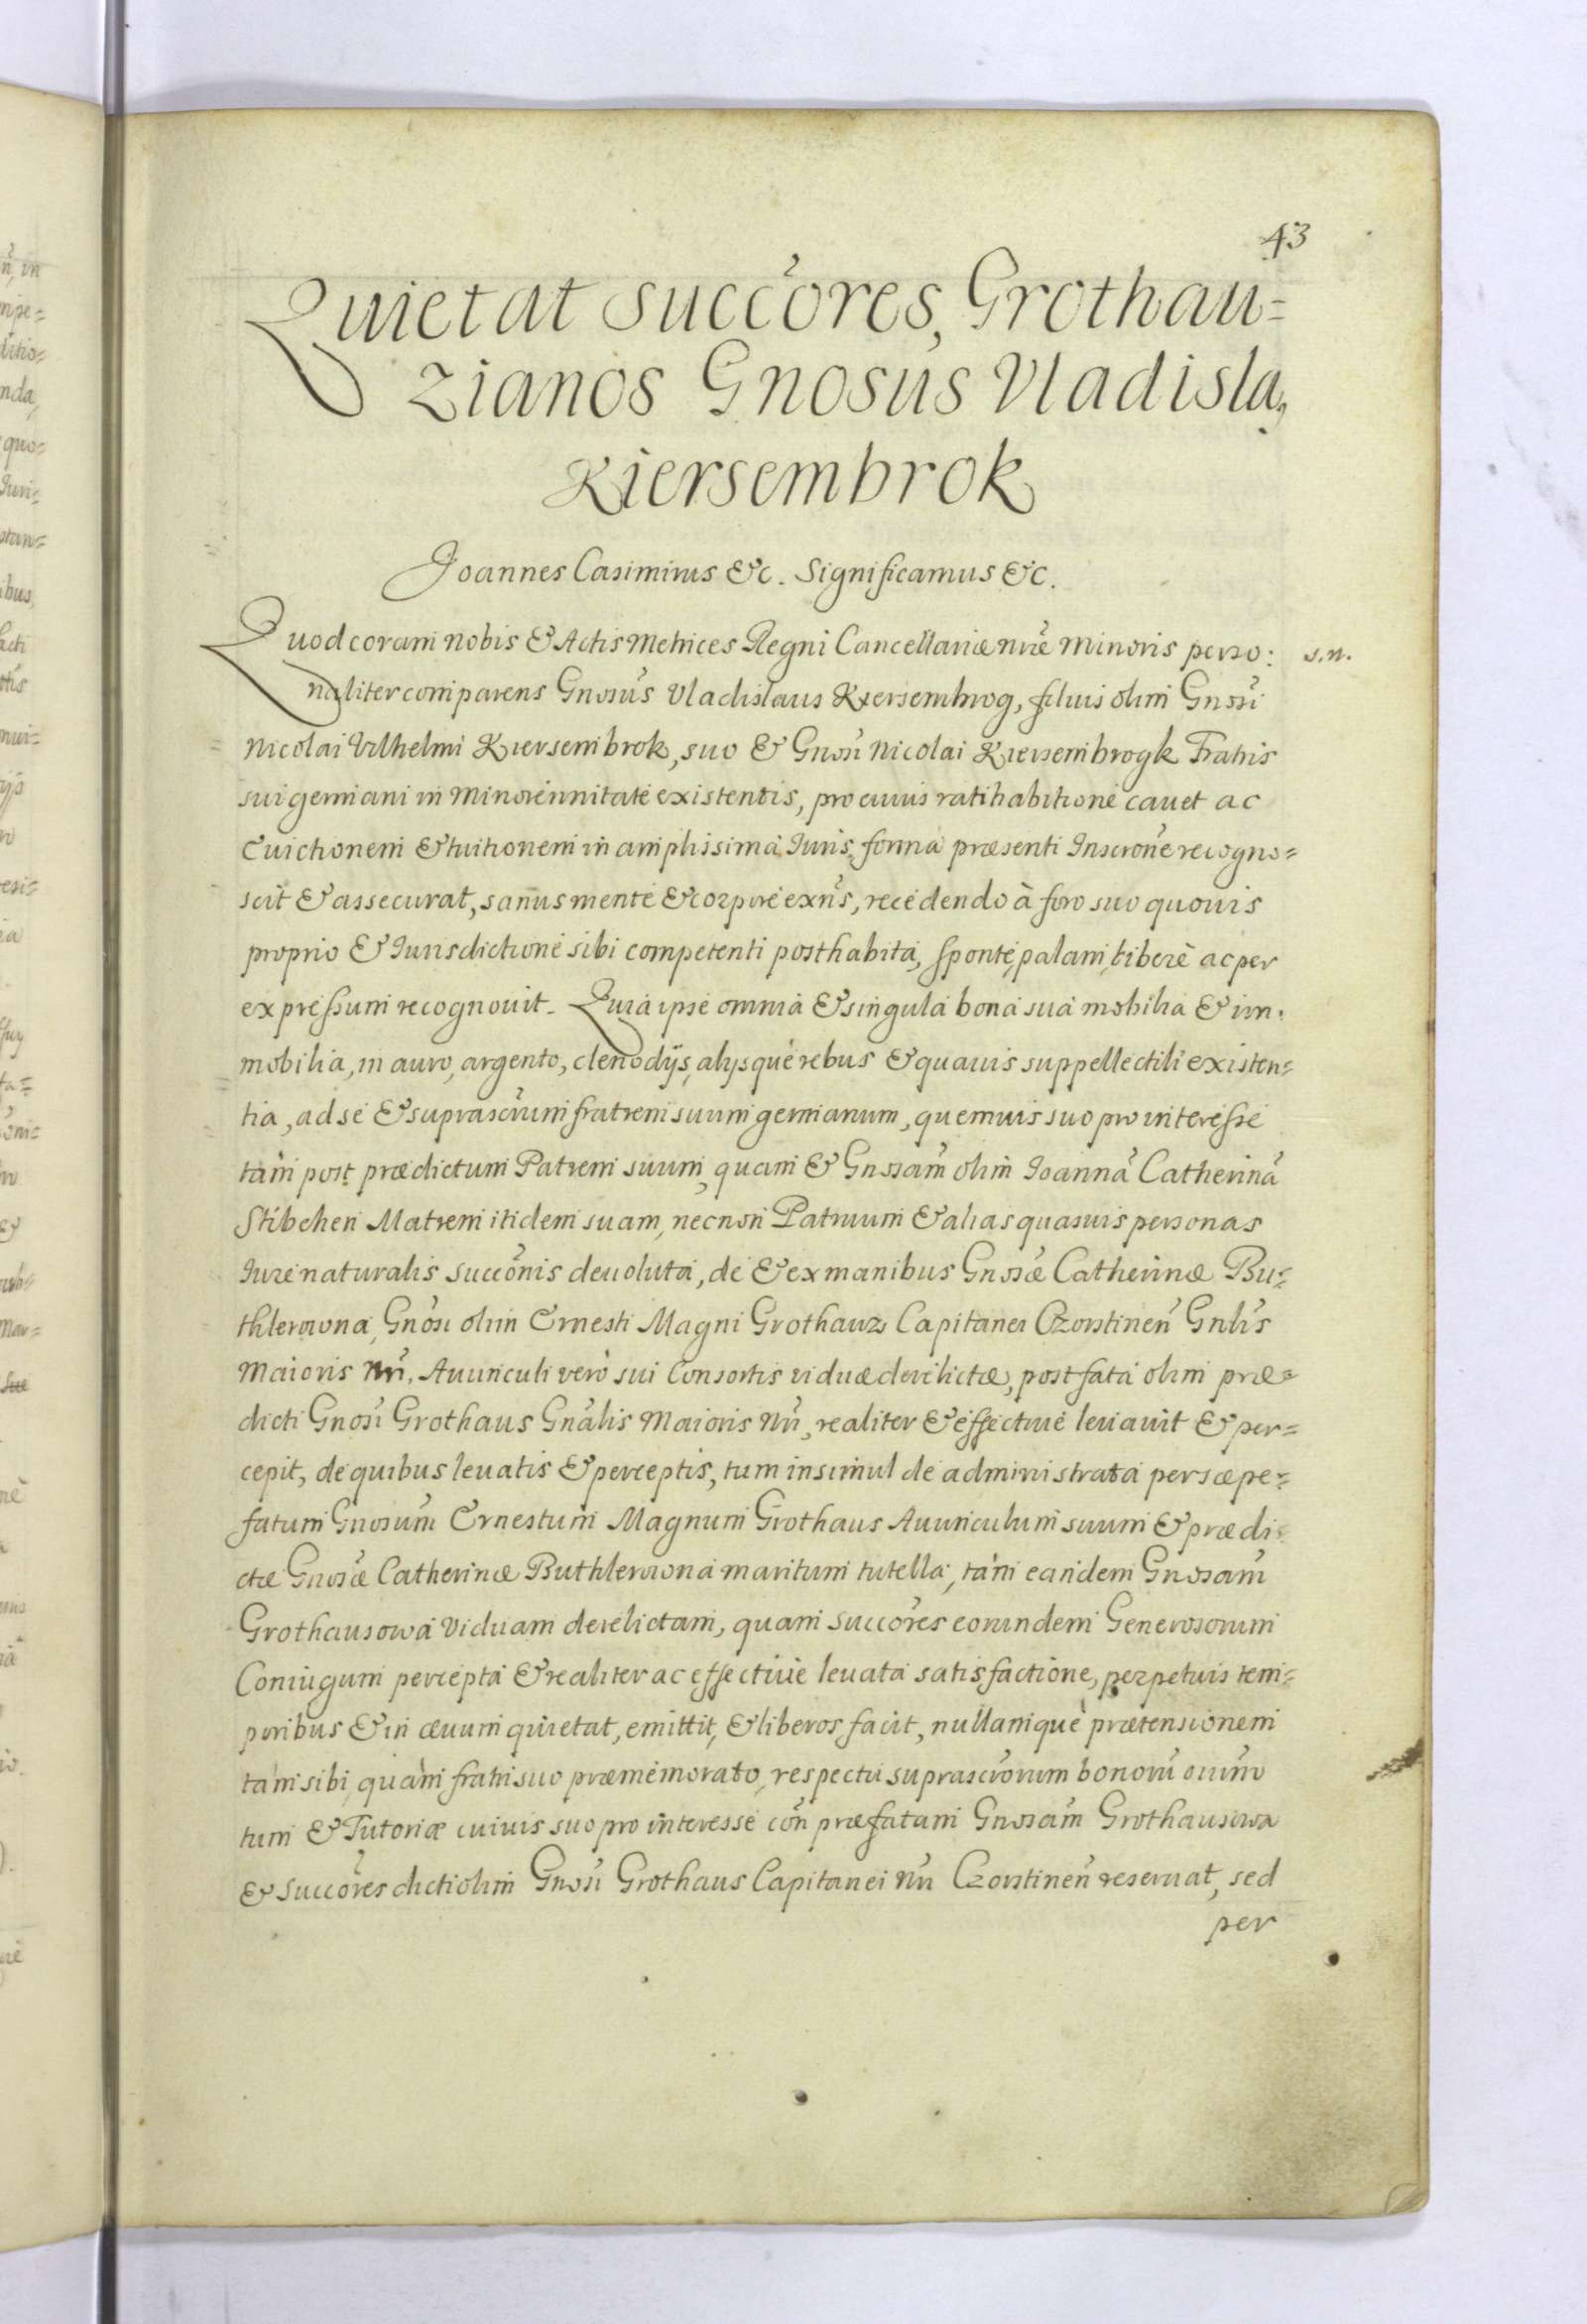 43
Quietat succores, Grothau=
zianos Gnosus Vladisla,
Kiersembrok
Joannes Casimirus &c. Significamus &c.
Quod coram nobis & Actis Metrices Regni Cancellariæ nræ minoris perso: s.n.
naliter comparens Gnosus Vladislaus Kiersembrog, filius olim Gnosi
Nicolai Vilhelmi Kiersembrok, suo & Gnosi Nicolai Kiersembrogk Fratris
sui germani in minorennitate existentis, pro cuius ratihabitione cauet ac
Euictionem & tuitionem in amplissima Iuris forma præsenti Inscrone recogno=
scit & assecurat, sanus mente & corpore exns, recedendo à foro suo quouis
proprio & Iurisdictione sibi competenti posthabita, sponte, palam, liberè ac per
expressum recognouit. Quia ipse omnia & singula bona sua mobilia & im:
mobilia, in auro, argento, clenodijs, alijsque rebus & quauis suppellectili existen=
tia, ad se & suprascrum fratrem suum germanum, quemuis suo pro interesse
tam post prædictum Patrem suum, quam & Gnosam olim Joannã Catherinã
Stibchen Matrem itidem suam, necnon Patruum & alias quasuis personas
Iure naturalis succonis deuoluta, de & ex manibus Gnosæ Catherinæ Bu=
thlerowna, Gnosi olim Ernesti Magni Grothauz Capitanei Czorstinen Gnlis
Maioris Nri, Auunculi verò sui Consortis viduæ derelictæ, post fata olim præ=
dicti Gnosi Grothaus Gnalis Maioris Nri, realiter & effectiue leuauit & per=
cepit, de quibus leuatis & perceptis, tum insimul de administrata per sæpe=
fatum Gnosum Ernestum Magnum Grothaus Auunculum suum & prædi=
ctæ Gnosæ Catherinæ Buthlerowna maritum tutella, tam eandem Gnosam
Grothausowa viduam derelictam, quam succores eorundem Generosorum
Coniugum percepta & realiter ac effectiue leuata satisfactione, perpetuis tem=
poribus & in æuum quietat, emittit, & liberos facit, nullamque prætensionem
tam sibi, quàm fratri suo præmemorato, respectu suprascrorum bonorũ omniũ
tum & Tutoriæ cuiuis suo pro interesse con præfatam Gnosam Grothausowa
& succores dicti olim Gnosi Grothaus Capitanei Nri Czorstinen reseruat, sed
per